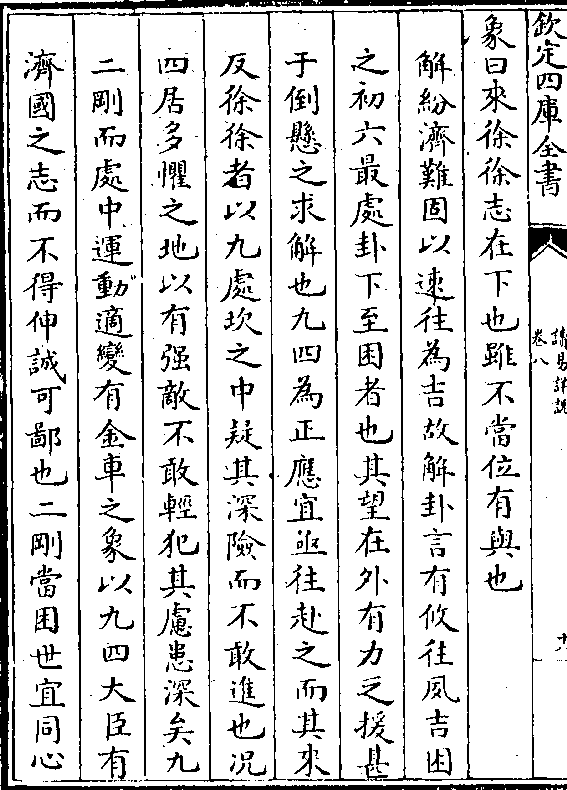 欽定四庫全書
讀易詳說
卷八
象曰來徐徐志在下也雖不當位有與也
解紛濟難固以速往為吉故解卦言有攸往夙吉困
之初六最處卦下至困者也其望在外有力之援甚
于倒懸之求解也九四為正應宜亟往赴之而其來
反徐徐者以九處坎之中疑其深險而不敢進也况
四居多懼之地以有强敵不敢輕犯其慮患深矣九
二剛而處中運動適變有金車之象以九四大臣有
濟國之志而不得伸誠可鄙也二剛當困世宜同心